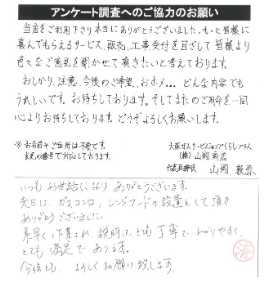 アンケート調査へのご協力のお願い
当店をご利用下さり本当にありがとうございました。もっと皆様に
喜んでもらえるサービス、販売、工事受付を目ざして皆様より
色々なご意見を聞かせて頂きたいと考えております。
おしかり、注意、今後のご希望、おホメ… どんな内容でも
うれしいです。お待ちしております。そしてまたのご用命を一同
心よりお待ちしております。どうぞよろしくお願いします。
※お名前やご住所は不要です。
代表
山岡
いつもお世話になり ありがとうございます。
先日は ガスコンロ、レンジフードの設置をして頂き
ありがとうございました。
素早く下見され、説明もとても丁寧で、わかりやすく、
とても満足であります。
今後も よろしくお願い致します。